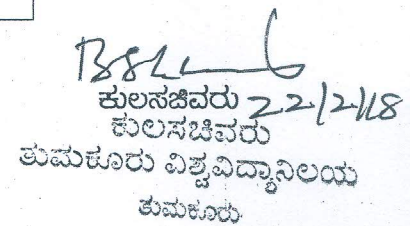 ಕುಲಸಚಿವರು 22/2/18
ಕುಲಸಚಿವರು
ತುಮಕೂರು ವಿಶ್ವವಿದ್ಯಾನಿಲಯ
ತುಮಕೂರು